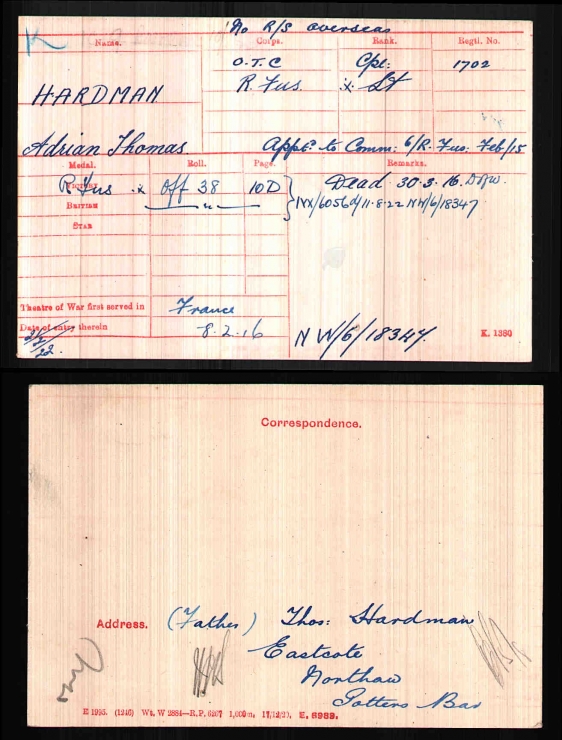 No R/S overseas
Name. Corps. Rank. Regtl. No.
O.T.C Cpl: 1702
HARDMAN R. Fus. x Lt
Adrian Thomas. Appt^d to Comm: 6/R. Fus: Feb/15
Medal. Roll. Page. Remarks.
VICTORY R Fus .x Off 38 10D } Dead 30.3.16. DofW
BRITISH — " — NX/6056 d/11.8.22 NW/6/18347
STAR
Theatre of War first served in France
Date of entry therein 8.2.16
NW/6/18347. K. 1380
Correspondence.
Address. (Father) Thos: Hardman
Eastcote
Northaw
Potters Bar
E 1955. (1246) Wt. W 2884—R.P. 6267 1,000m, 17/12/20. E. 5989.